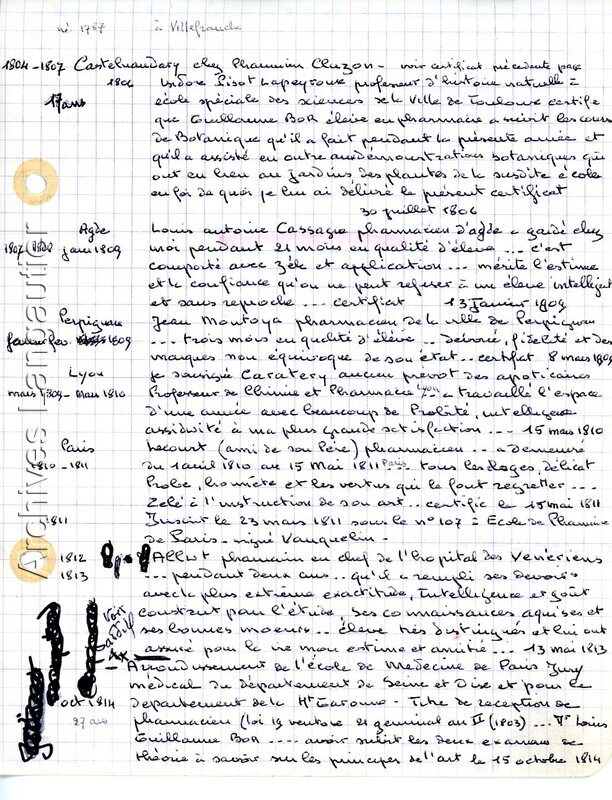 né 1787 à Villefranche
1804-1807 Castelnaudary chez Pharmacien Cluzon - voir certificat précédente page
1806 Isidore Picot Lapeyrouse professeur d'histoire naturelle =
17 ans école spéciale des sciences de la Ville de Toulouse certifie
que Guillaume BOR élève en pharmacie a suivit les cours
de Botanique qu'il a fait pendant la présente année et
qu'il a assisté en outre aux démonstrations botaniques qui
ont eu lieu au jardins des plantes de la susdite école
en foi de quoi je lui ai délivré le présent certificat
30 juillet 1806
Agde Louis antoine Cassagne pharmacien d'agde a gardé chez
1807 janv 1809 moi pendant 21 mois en qualité d'élève ... c'est
comporté avec Zèle et application ... mérite l'estime
et la confiance qu'on ne peut refuser à un élève intelligent
et sans reproche ... certificat 13 Janvier 1809
Perpignan Jean Montoya pharmacien de la ville de Perpignan ...
1809 ... trois mois en qualité d'élève .. dévoué, fidélité et des
marques non équivoque de son état .. certifiat 8 mars 1809
Lyon je soussigné Caratery ancien prévot des apoticaires
mars 1809 - mars 1810 Professeur de Chimie et Pharmacie Lyon .. a travaillé l'espace
d'une année avec beaucoup de Probité, intelligence
assiduité à ma plus grande satisfaction ... 15 mars 1810
Paris Lecourt (ami de son Père) pharmacien .. a demeuré
1810 - 1811 du 1 avril 1810 au 15 Mai 1811 Paris .. tous les éloges, délicat
Probe, honnête et les vertus qui le font regretter ...
Zelé à l'instruction de son art .. certifie le 15 mai 1811
1811 Inscrit le 23 mars 1811 sous le n° 107 = Ecole de Pharmacie
de Paris - signé Vauquelin -
1812 pharmacien en chef de l'hopital des Vénériens
1813 ... pendant deux ans .. qu'il a rempli ses devoirs
avec la plus extrême exactitude, Intelligence et goût
constant pour l'étude, ses connaissances aquises et
voir ses bonnes moeurs .. élève très distingués et lui ont
assuré pour la vie mon estime et amitié ... 13 mai 1813
- Arrondissement de l'école de Medecine de Paris Jury
médical du département de Seine et Oise et pour le
oct 1814 departement de la Hte Garonne - Titre de reception de
27 ans pharmacien (loi 19 ventose 21 germinal an II (1803) ... Louis
Guillaume BOR ---- avoir subit les deux examens de
théorie à savoir sur les principes de l'art le 15 octobre 1814
Archives Langautier